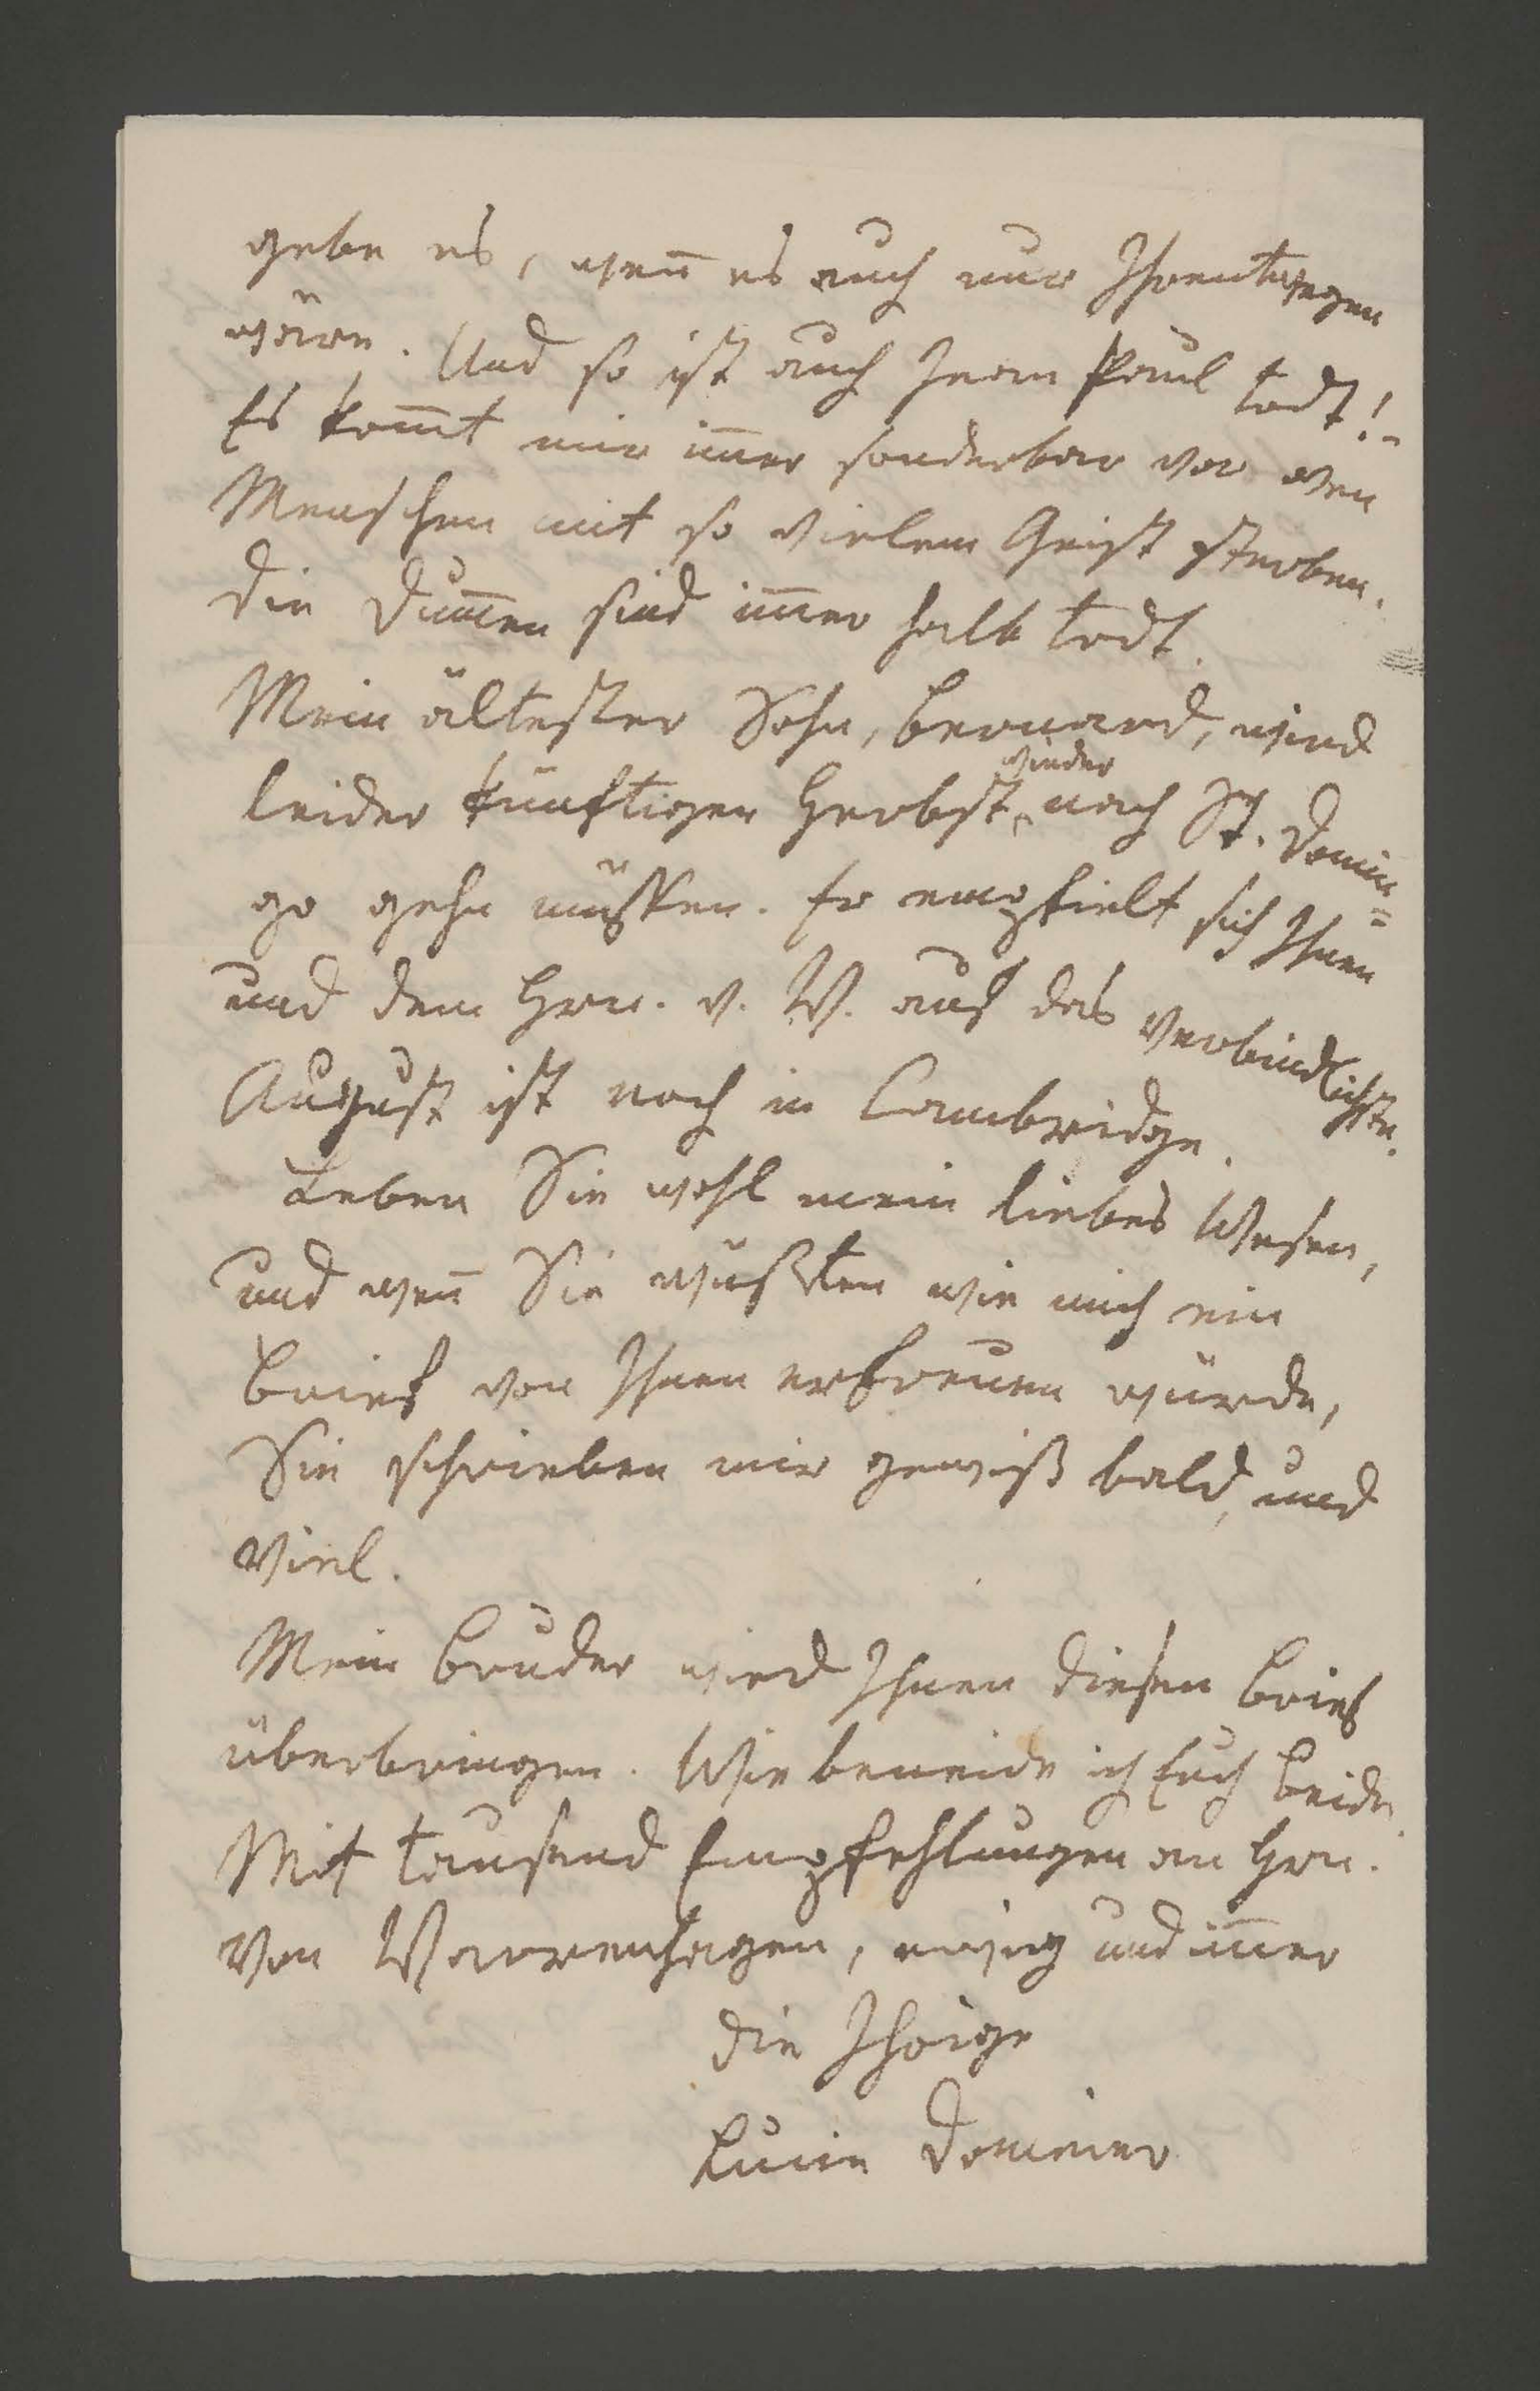 gebe es, wen̄ es auch nur Ihrentwegen
wäre. Und so ist auch Jean Paul todt!-
Es kom̄t mir im̄er sonderbar vor wen
Menschen mit so vielem Geist sterben.
die Dum̄en sind im̄er halb todt.
Mein ältester Sohn, Bernard, wird
wieder
leider künftigen Herbst nach St. Domin=
go gehn müssen. Er empfielt sich Ihnen
und dem Hrn. v. V. auf das verbindlichste.
August ist noch in Cambridge.
Leben Sie wohl mein liebes Wesen,
und wen̄ Sie wüßten wie mich ein
Brief von Ihnen erfreuen würde,
Sie schrieben mir gewiß bald, und
viel.
Mein Bruder wird Ihnen diesen Brief
überbringen. Wie beneide ich Euch beide.
Mit tausend Empfehlungen an Hrn.
von Varrenhagen, ewig und im̄er
die Ihrige
Lucie Domeier